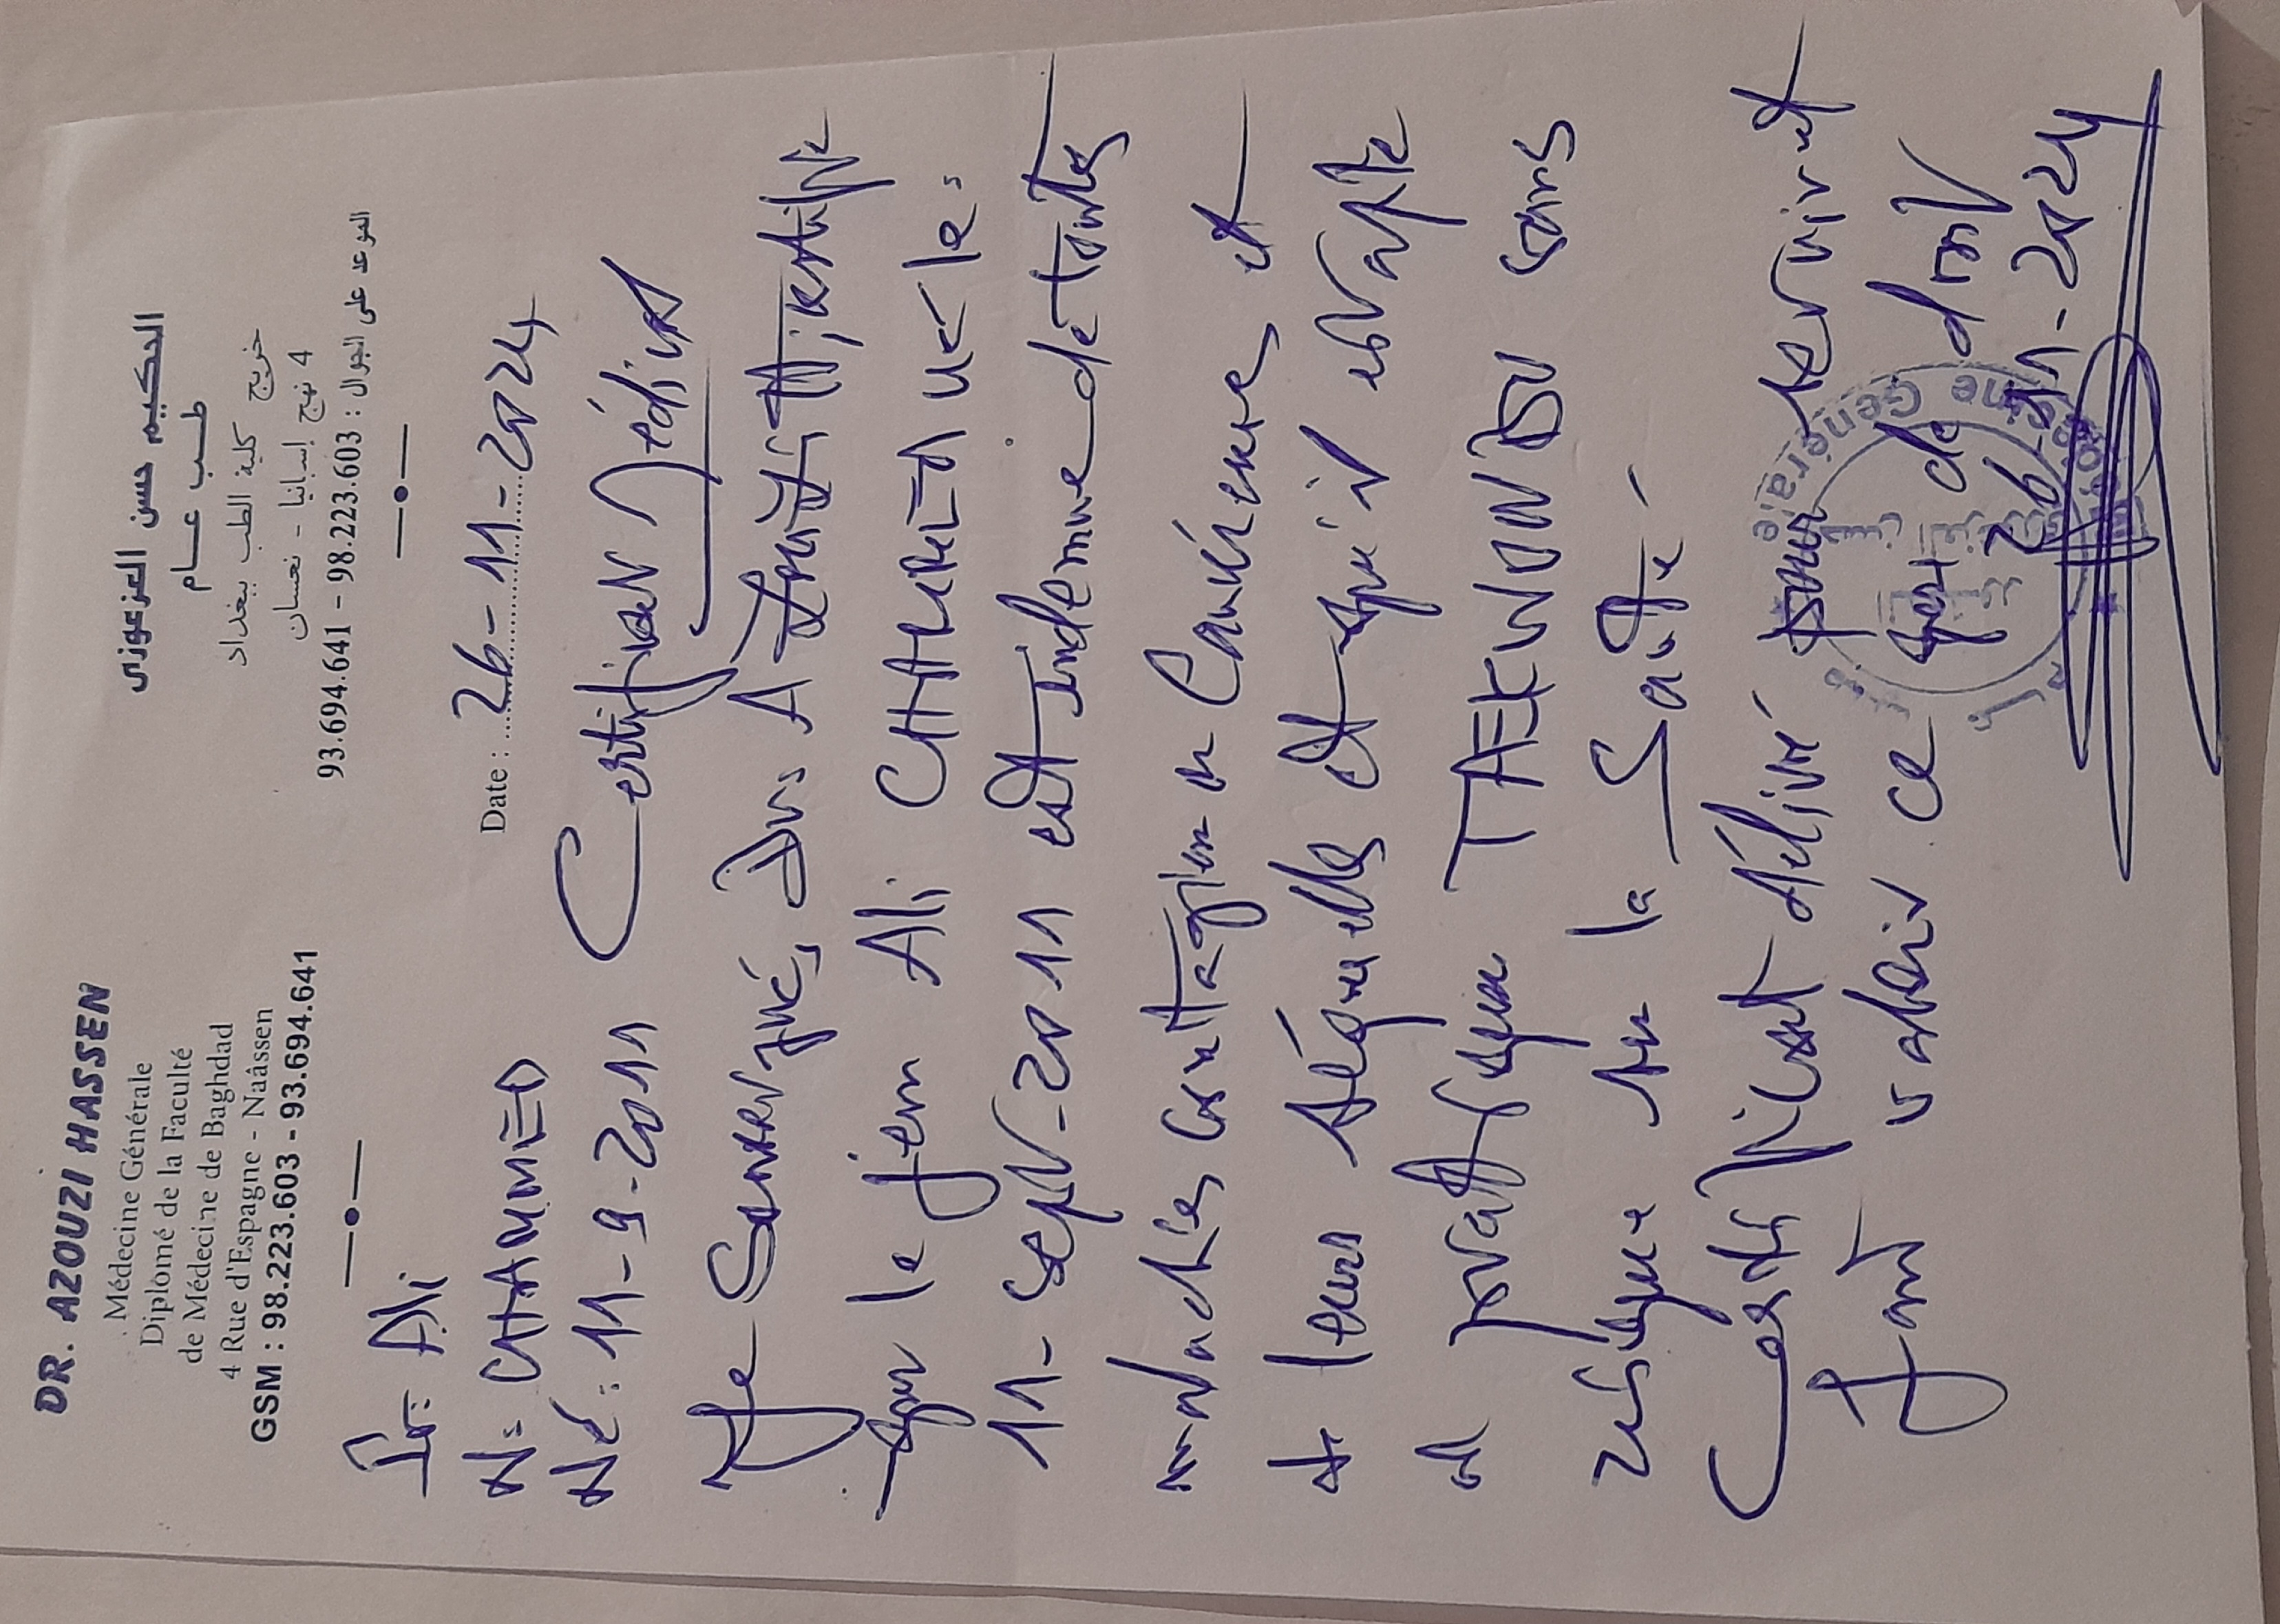 DR. AZOUZI HASSEN
Médecine Générale
Diplômé de la Faculté
de Médecine de Baghdad
4 Rue d'Espagne - Naâssen
GSM : 98.223.603 - 93.694.641
الحكيم حسن العزعوزي
طب عام
خريج كلية الطب ببغداد
4 نهج إسبانيا - نعسان
الموعد على الجوال : 93.694.641 - 98.223.603
Date : 26-11-2024
Pr: Ali
N: CHAMMED
Né: 11-9-2011
Certificat Médical
Je Soussigné, Dr. certifie
que le jeun Ali né le:
11-Sept-2011 est indemne de toutes
maladies contagieuse et
et apte
a pratiquer TAEKWONDO sans
risque sur la Santé
Certificat délivré pour servir et
faire valoir ce que de droit
26-11-2024
Médecine Générale